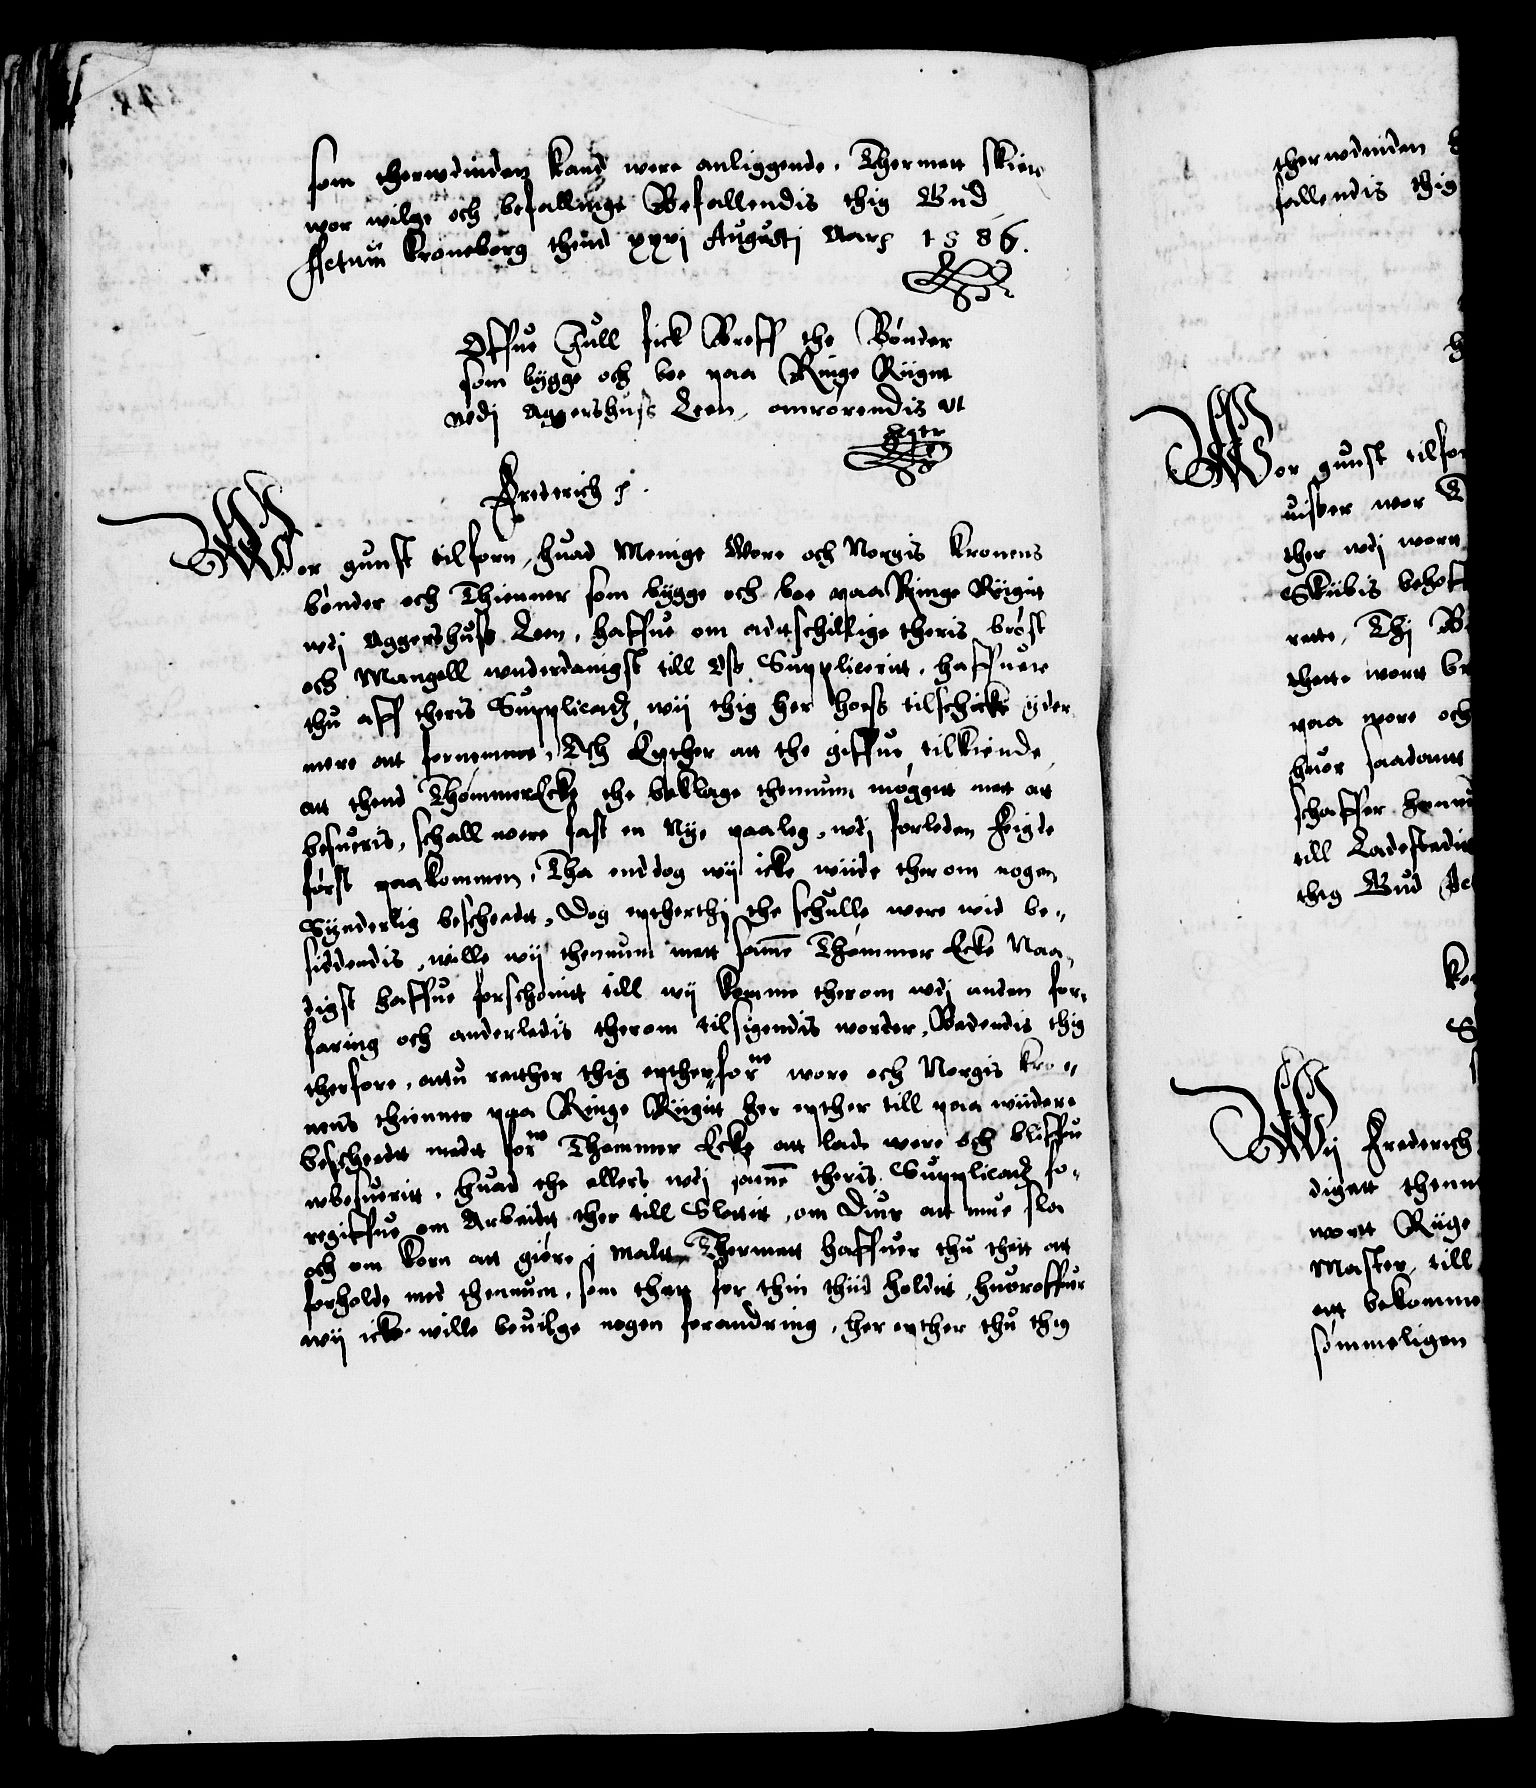 som therwdinden kand were anliggende. Thermett skier
wor wilge och befallinge Befallendis thig Gud
Actum Kroneborg thend xxvj Augustj Aars 1586.
Offue Jull fick Breff the Bønder
som bygge och boe paa Ringe Riiget
vedj Aggershuss Leen, omrørendis ut
Frederich
Wor gunst tilforn, huad Menige Wore och Norgis Kronens
bønder och Thienner som bygge och boe paa Ringe Riigit
wdj Aggershuss Leen, haffue om adtschillige theris brøst
och Mangell wnderdanigst till Oss Supplicerit, haffuer
thu aff theris Supplicatz wij thig her hoess tilschicke yder
mere att fornemme, Och Epther att the giffue tilkiende
att thend ThømmerEcke the beklage thennum møgget mett att
besueris, schall were fast en Nye paaleg, wdj forleden Feigde
først paakommen, Tha enddog wij icke wiide therom nogen
Synderlig bescheedt, Dog eptherthj the schulle were wid be-
siddendis, wille wij thennum mett samme Thømmer Ecke Naa-
digst haffue forschonitt till wij komme therom wdj anden for-
faring och anderledis therom tilsigendis worder, Bedendis thig
therfore, attu retther thig epther forne wore och Norgis Kro-
nens thienner paa Ringe Riigit her epther till paa wiidere
bescheedt medt forne Thømmer Ecke att lade were och bliffue
wbesuerit, huad the ellers wdj samme theris Supplicatz fo-
regiffue om Arbeidt ther till Slottit, om Diur att mue slaa
och om Korn att giøre j Malt, Thermett haffuer thu thett att
forholde med thennum, som thet for thin thiid holdit, huoroffuer
wij icke wille beuilge nogen forandring, her epther thu thig
therwdinden
fallendis thig
Wor gunst tilfor
uisper wor
ther wdj wortt
Skibis behoff
rette, Thj
thette wortt
paa wore och
huor saadant
schaffer hennd
till Ladestedit
thig Gud
Wij Frederich
digett thenn
wortt Riige
Master, till
att bekomme
sømmeligen